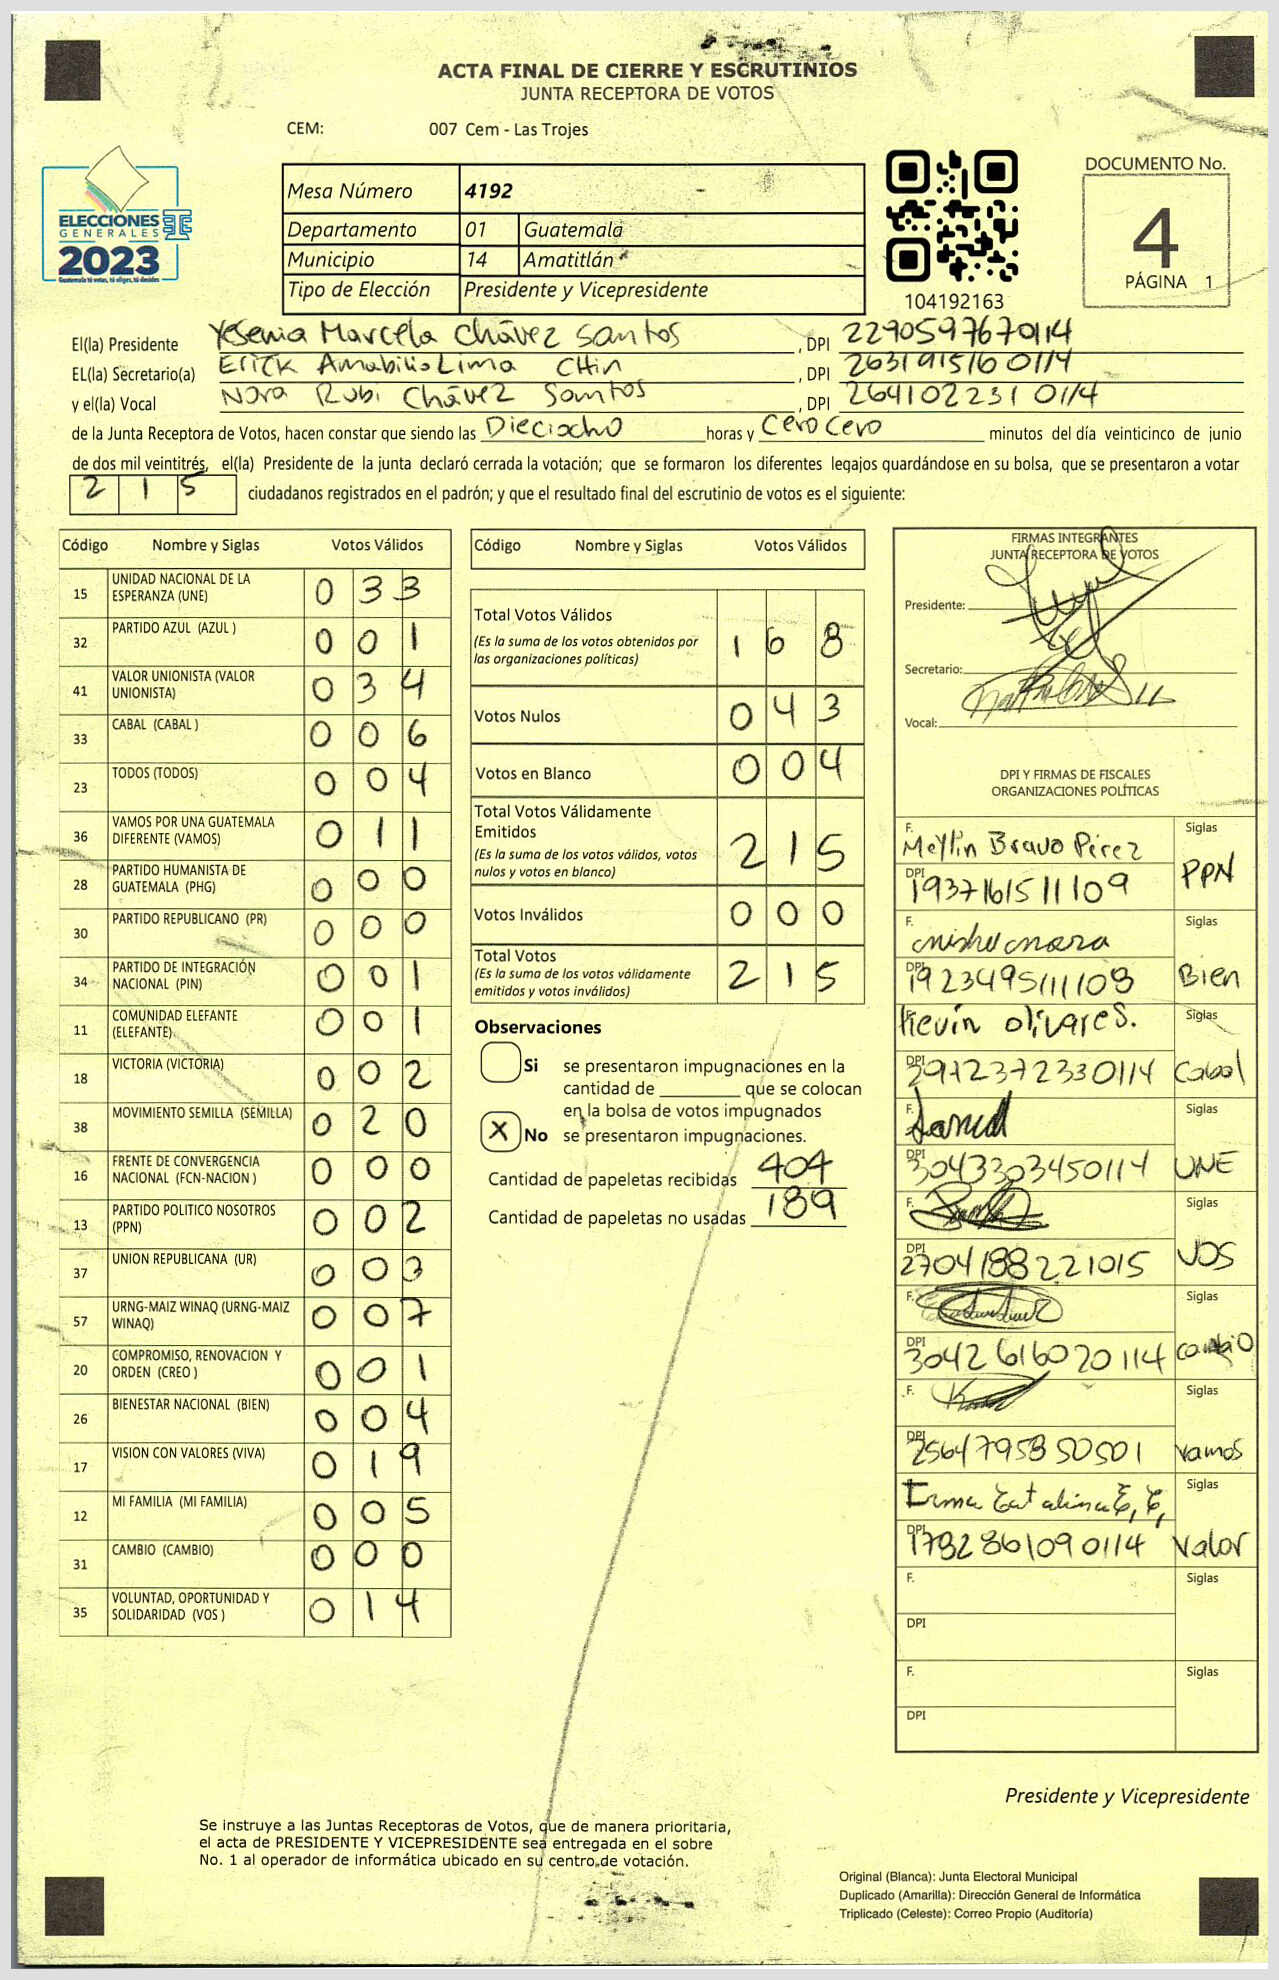 ACTA FINAL DE CIERRE Y ESCRUTINIOS
JUNTA RECEPTORA DE VOTOS
CEM: 007 Cem - Las Trojes
ELECCIONES
GENERALES
2023
Guatemala tú votas, tú eliges, tú decides
Mesa Número 4192
Departamento 01 Guatemala
Municipio 14 Amatitlán
Tipo de Elección Presidente y Vicepresidente
104192163
DOCUMENTO No.
4
PÁGINA 1
El(la) Presidente Yesenia Marcela Chávez Santos , DPI 2290597670114
EL(la) Secretario(a) Erick Amabilio Lima CHin , DPI 2631915160114
y el(la) Vocal Nora Rubi Chávez Santos , DPI 2641022310114
de la Junta Receptora de Votos, hacen constar que siendo las Dieciocho horas y Cero Cero minutos del día veinticinco de junio
de dos mil veintitrés, el(la) Presidente de la junta declaró cerrada la votación; que se formaron los diferentes legajos guardándose en su bolsa, que se presentaron a votar
215 ciudadanos registrados en el padrón; y que el resultado final del escrutinio de votos es el siguiente:
Código Nombre y Siglas Votos Válidos
15 UNIDAD NACIONAL DE LA ESPERANZA (UNE) 033
32 PARTIDO AZUL (AZUL ) 001
41 VALOR UNIONISTA (VALOR UNIONISTA) 034
33 CABAL (CABAL ) 006
23 TODOS (TODOS) 004
36 VAMOS POR UNA GUATEMALA DIFERENTE (VAMOS) 011
28 PARTIDO HUMANISTA DE GUATEMALA (PHG) 000
30 PARTIDO REPUBLICANO (PR) 000
34 PARTIDO DE INTEGRACIÓN NACIONAL (PIN) 001
11 COMUNIDAD ELEFANTE (ELEFANTE) 001
18 VICTORIA (VICTORIA) 002
38 MOVIMIENTO SEMILLA (SEMILLA) 020
16 FRENTE DE CONVERGENCIA NACIONAL (FCN-NACION ) 000
13 PARTIDO POLITICO NOSOTROS (PPN) 002
37 UNION REPUBLICANA (UR) 003
57 URNG-MAIZ WINAQ (URNG-MAIZ WINAQ) 007
20 COMPROMISO, RENOVACION Y ORDEN (CREO ) 001
26 BIENESTAR NACIONAL (BIEN) 004
17 VISION CON VALORES (VIVA) 019
12 MI FAMILIA (MI FAMILIA) 005
31 CAMBIO (CAMBIO) 000
35 VOLUNTAD, OPORTUNIDAD Y SOLIDARIDAD (VOS ) 014
Código Nombre y Siglas Votos Válidos
Total Votos Válidos 168
(Es la suma de los votos obtenidos por
las organizaciones políticas)
Votos Nulos 043
Votos en Blanco 004
Total Votos Válidamente
Emitidos 215
(Es la suma de los votos válidos, votos
nulos y votos en blanco)
Votos Inválidos 000
Total Votos 215
(Es la suma de los votos válidamente
emitidos y votos inválidos)
Observaciones
Si se presentaron impugnaciones en la
cantidad de ________ que se colocan
en la bolsa de votos impugnados
X No se presentaron impugnaciones.
Cantidad de papeletas recibidas 404
Cantidad de papeletas no usadas 189
FIRMAS INTEGRANTES
JUNTA RECEPTORA DE VOTOS
Presidente:
Secretario:
Vocal:
DPI Y FIRMAS DE FISCALES
ORGANIZACIONES POLÍTICAS
F. Meylin Bravo Pérez Siglas
DPI 1937161511109 PPN
F. Siglas
DPI Bien
Kevin olivares. Siglas
DPI 2972372330114 Cabal
F. Siglas
DPI 3043303450114 UNE
F. Siglas
DPI 2704188221015 VOS
F. Siglas
DPI 3042616020114 cambio
F. Siglas
DPI 2564795850501 vamos
Irma Catalina Siglas
DPI 1782861090114 Valor
F. Siglas
DPI
F. Siglas
DPI
Presidente y Vicepresidente
Se instruye a las Juntas Receptoras de Votos, que de manera prioritaria,
el acta de PRESIDENTE Y VICEPRESIDENTE sea entregada en el sobre
No. 1 al operador de informática ubicado en su centro de votación.
Original (Blanca): Junta Electoral Municipal
Duplicado (Amarilla): Dirección General de Informática
Triplicado (Celeste): Correo Propio (Auditoría)